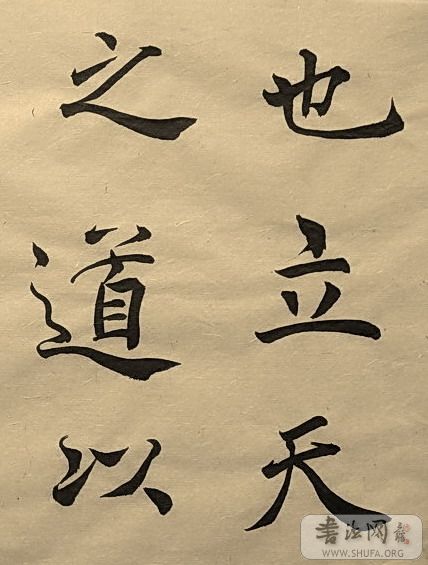 也立天
之道以
書法网
WWW.SHUFA.ORG